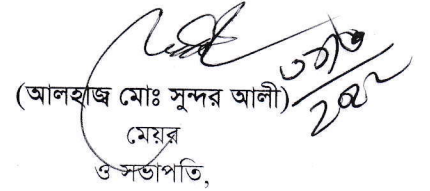 (আলহাজ্ব মোঃ সুন্দর আলী)
মেয়র
ও সভাপতি,